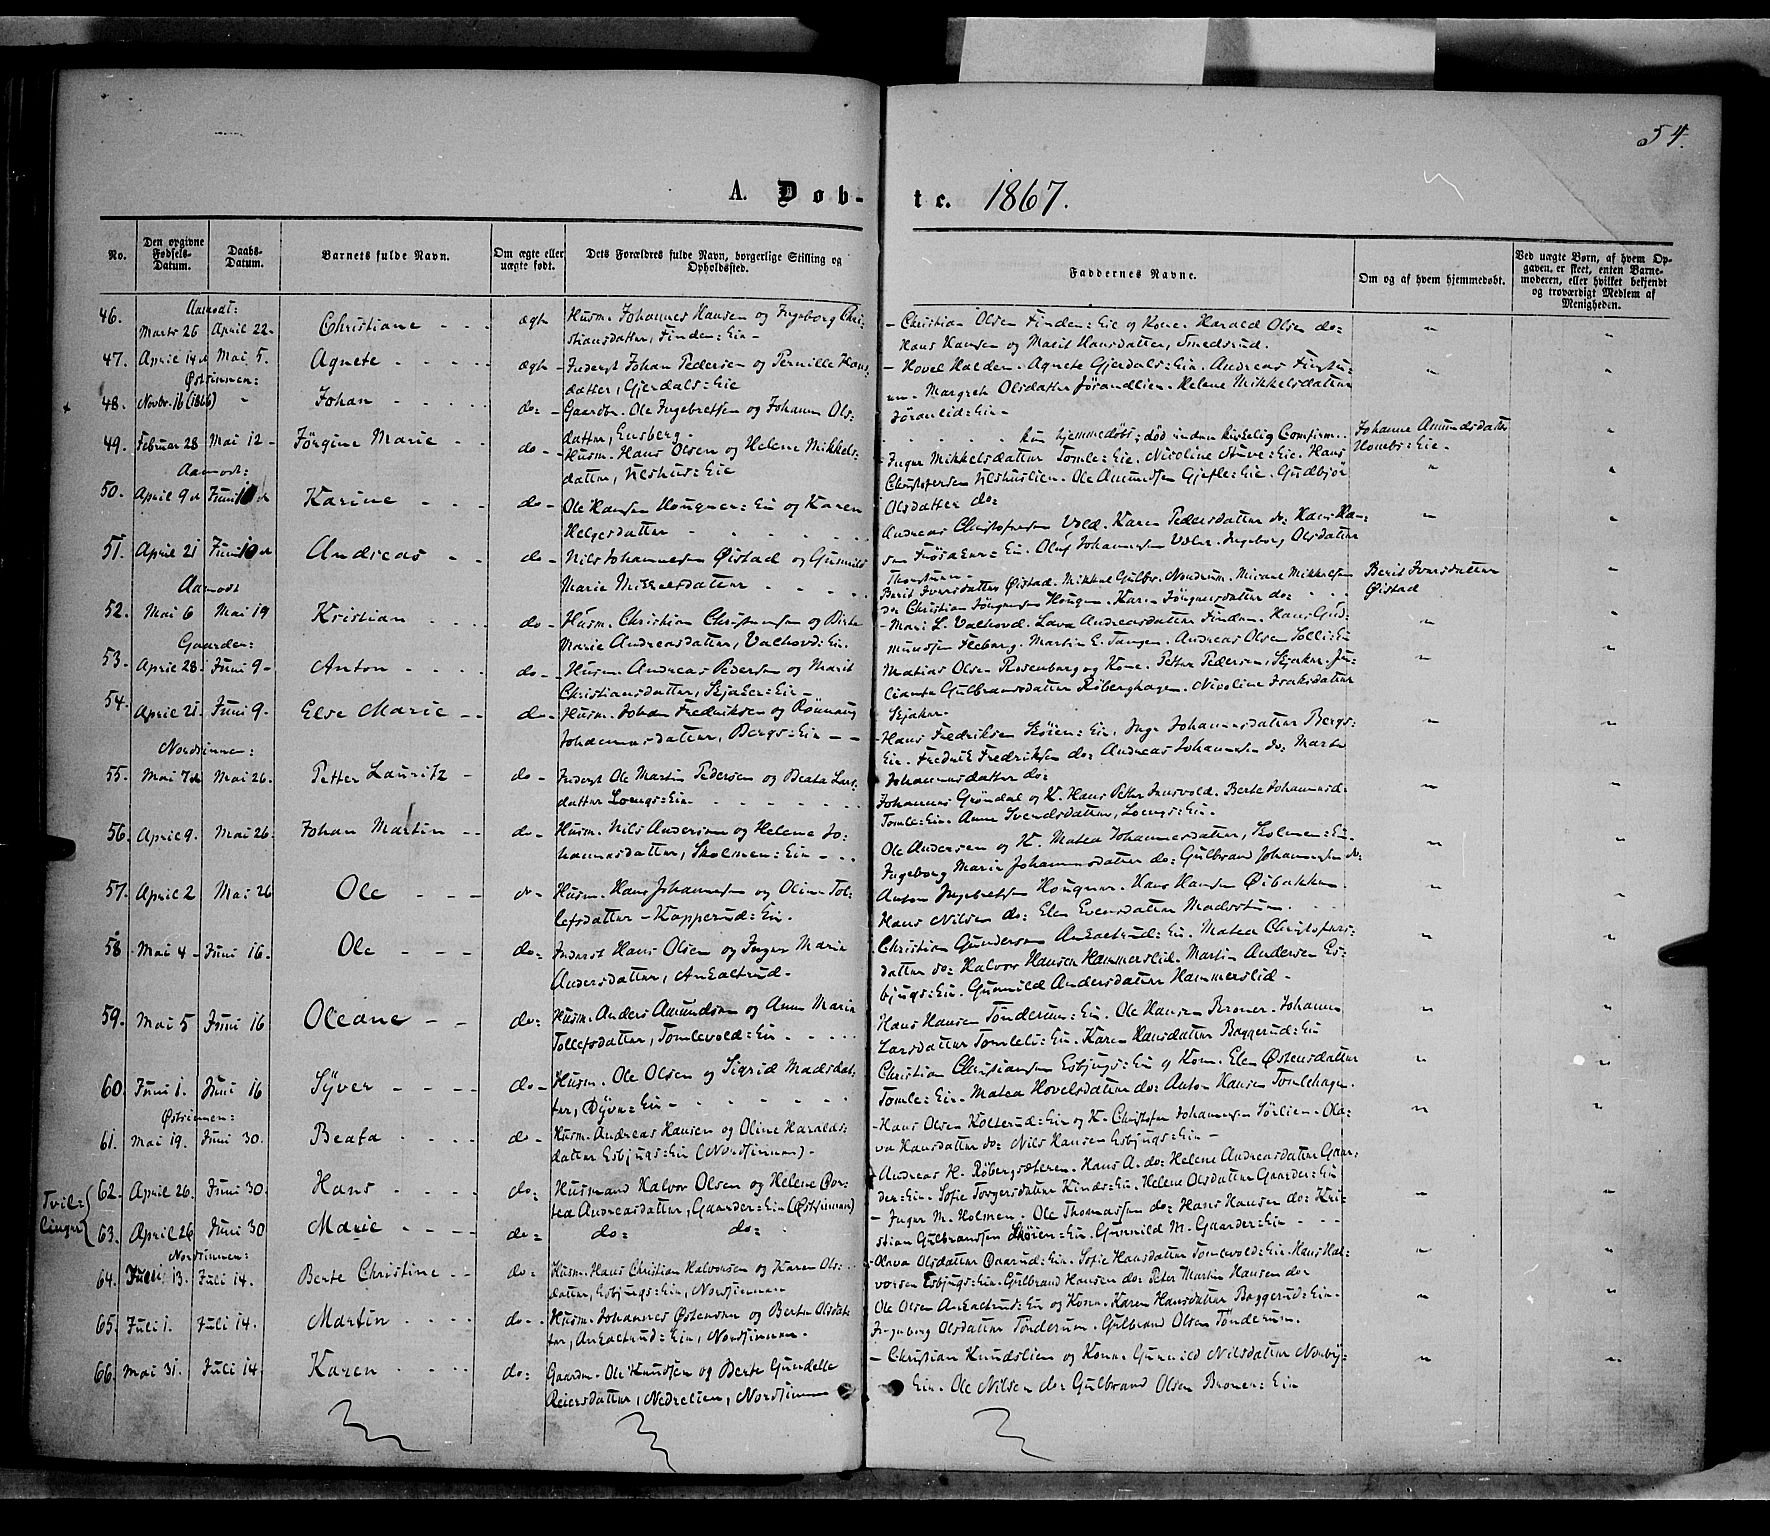 54.
A. Døb-
te. 1867.
No.
Den opgivne Fødsels-Datum.
Daabs-Datum.
Barnets fulde Navn.
Om ægte eller uægte født.
Dets Forældres fulde Navn, borgerlige Stilling og Opholdssted.
Faddernes Navne.
Om og af hvem hjemmedøbt.
Ved uægte Børn, af hvem Op-
gaven er skeet, enten Barne-
moderen, eller hvilket bekjendt
og troværdigt Medlem af
Menigheden.
Aamodt:
46. Marts 26 April 22- Christiane - - - ægte Husm. Johannes Hansen og Ingeborg Chri-
stiansdatter, Finden=Eie -
- Christian Olsen Finden=Eie og Kone. Harald Olsen do=
Hans Hansen og Marit Hansdatter, Smedsrud.
47. April 14de Mai 5. Agnete - - - - ægte Inderst Johan Pedersen og Pernille Hans-
datter, Gjerdals=Eie
- Hovel Halden. Agnete Gjerdals=Eie. Andreas
Margreth Olsdatter Jørandlien. Helene Mikkelsdatter
Jøranlid=Eie -
Østsinnen:
48. Novbr. 16 (1866) " Johan - - - - do= Gaardbr. Ole Ingebretsen og Johanne Ols-
datter, Ensberg -
kun hjemmedøbt; død inden kirkelig Comfirm. Johanne Amundsdatter
Eie -
49. Februar 28 Mai 12- Jørgine Marie - - do- Husm. Hans Olsen og Helene Mikkels-
datter, Ulshus=Eie
Inger Mikkelsdatter Tomle=Eie. Nicoline Stuve=Eie. Hans
Christofersen Ulshuslien. Ole Amundsen Gjefle=Eie. Gudbjør
Olsdatter do=
Aamodt:
50. April 9de Juni 10de Karine - - - do- Ole Hansen Hougner=Eie og Karen
Helgesdatter
Andreas Christofersen Vold. Karen Pedersdatter do= Hans Han-
sen Eie. Oluf Johannesen. Ingeborg Olsdatter
51. April 21 Juni 10de Andreas - - do- Nils Johannesen Øistad og Gunnild
Marie Mikkelsdatter
Berit Iversdatter Øistad. Mikkel Gulbr. Nordrum. Mikkelsen
do= Christian Jørgensen Hougen. Karen Jørgensdatter do=
Berit Iversdatter
Øistad
Aamodt
52. Mai 6 Mai 19 Kristian - - - do- Husm. Christian Christensen og Birte
Marie Andreasdatter, Valhovd=Eie.
- Mari L. Valhovd. Lava Andreasdatter Finden. Hans Gud-
mundsen Fleberg. Martin E. Tangen. Andreas Olsen Solli=Eie
Gaarder:
53. April 28. Juni 9- Anton - - - do- Husm. Andreas Pedersen og Marit
Christiansdatter, Skjaker=Eie -
Mathias Olsen Rosenborg og Kone. Petter Pedersen, Skjaker. Ju-
liane Gulbrandsdatter Røberghagen. Nicoline Isaksdatter
Skjaker.
54. April 21. Juni 9. Else Marie - - do- Husm. Johan Fredriksen og Rønnaug
Johannesdatter, Bergs=Eie - -
- Hans Fredriksen Skøien=Eie. Inge Johannesdatter Bergs=
Eie. Fredrik Fredriksen do= Andreas Johannesen do= Marte
Johannesdatter do=
Nordsinne:
55. Mai 7de Mai 26. Petter Lauritz - do- Inderst Ole Martin Pedersen og Beata Lars-
datter Loengs=Eie
Johannes Grøndal og K. Hans Petter. Berte Johannesd.
Tomle=Eie. Anne Svendsdatter, Loengs=Eie.
56. April 9. Mai 26. Johan Martin - - do- Husm. Nils Andersen og Helene Jo-
hannesdatter, Skolmen=Eie
Ole Andersen og K. Matea Johannesdatter, Skolmen=Eie
Ingeborg Marie Johannesdatter do= Gulbrand Johannesen do=
57. April 2 Mai 26 Ole - - - do- Husm. Hans Johannesen og Oline Tol-
lefsdatter - Kopperud=Eie.
Anton Ingebretsen Hougner. Hans Hansen Øibakken.
Hans Nilsen do= Elen Evensdatter Madsstuen
58 Mai 4 - Juni 16. Ole - - - do= Inderst Hans Olsen og Inger Marie
Andersdatter, Ankaltrud -
Christian Gundersen Ankaltrud=Eie. Matea Christofers-
datter do= Halvor Hansen Hammerslid. Martin Andersen Es-
bjugs=Eie. Gunnild Andersdatter Hammerslid -
59. Mai 5 Juni 16 Oleane - - do= Husm. Anders Amundsen og Anne Marie
Tollefsdatter, Tomlevold=Eie
Hans Hansen Tønderum=Eie. Ole Hansen Broner. Johanne
Larsdatter Tomlei=Eie. Karen Hansdatter Baggerud=Eie
60. Juni 1. Juni 16 Syver - - - - do- Husm. Ole Olsen og Sigrid Madsdat-
ter, Dyve=Eie -
Christian Christiansen Esbjugs=Eie og Kone. Elen Østensdatter
Tomle=Eie. Matea Hovelsdatter do= Anton Hansen Tomlehagen.
Østsinnen:
61. Mai 19. Juni 30. Beata - - - - do- Husm. Andreas Hansen og Oline Haralds-
datter Esbjugs=Eie (Nordsinnen).
- Hans Olsen Kolterud=Eie og K. Christofer Johannesen Sørlien. Ola-
va Hansdatter do= Nils Hansen Esbjugs=Eie -
Tvil-
linger
62. April 26. Juni 30. Hans - - - - do= Husmand Halvor Olsen og Helene Dor-
tea Andreasdatter, Gaarder=Eie (Østsinnen)
Andreas H. Røbergsæteren. Hans A. do= Helene Andreasdatter Gaar-
der=Eie. Sofie Torgersdatter Kinds=Eie. Helene Olsdatter Gaarder=Eie
63. April 26 Juni 30 Marie - - - - do= do= do=
- Inger M. Holmen. Ole Thomassen do= Hans Hansen do= Kri-
stian Gulbrandsen Skøien=Eie. Gunnild M. Gaarder=Eie - - -
Nordsinnen:
64. Juli 13. Juli 14. Berte Christine - - do= Husm. Hans Christian Halvorsen og Karen Ols-
datter, Esbjugs=Eie, Nordsinnen
- Olava Olsdatter Eie. Sofie Hansdatter Tomlevold=Eie. Hans Hal-
vorsen Esbjugs=Eie. Gulbrand Hansen do= Peter Martin Hansen do=
65. Juli 1. Juli 14. Martin - - - - do- Husm. Johannes Østensen og Berte Olsdat-
ter, Ankaltrud=Eie, Nordsinnen.
Ole Olsen Ankaltrud=Eie og Kone. Karen Hansdatter Baggerud=Eie.
Ingeborg Olsdatter Tønderum. Gulbrand Olsen Tønderum.
66. Mai 31. Juli 14 Karen - - - - do= Gaardm. Ole Knudsen og Berte Gundelle
Reiersdatter, Nedrelien, Nordsinnen
- Christian Knudslien og Kone. Gunnild Nilsdatter Nordby=
Eie. Ole Nilsen do= Gulbrand Olsen Broner=Eie